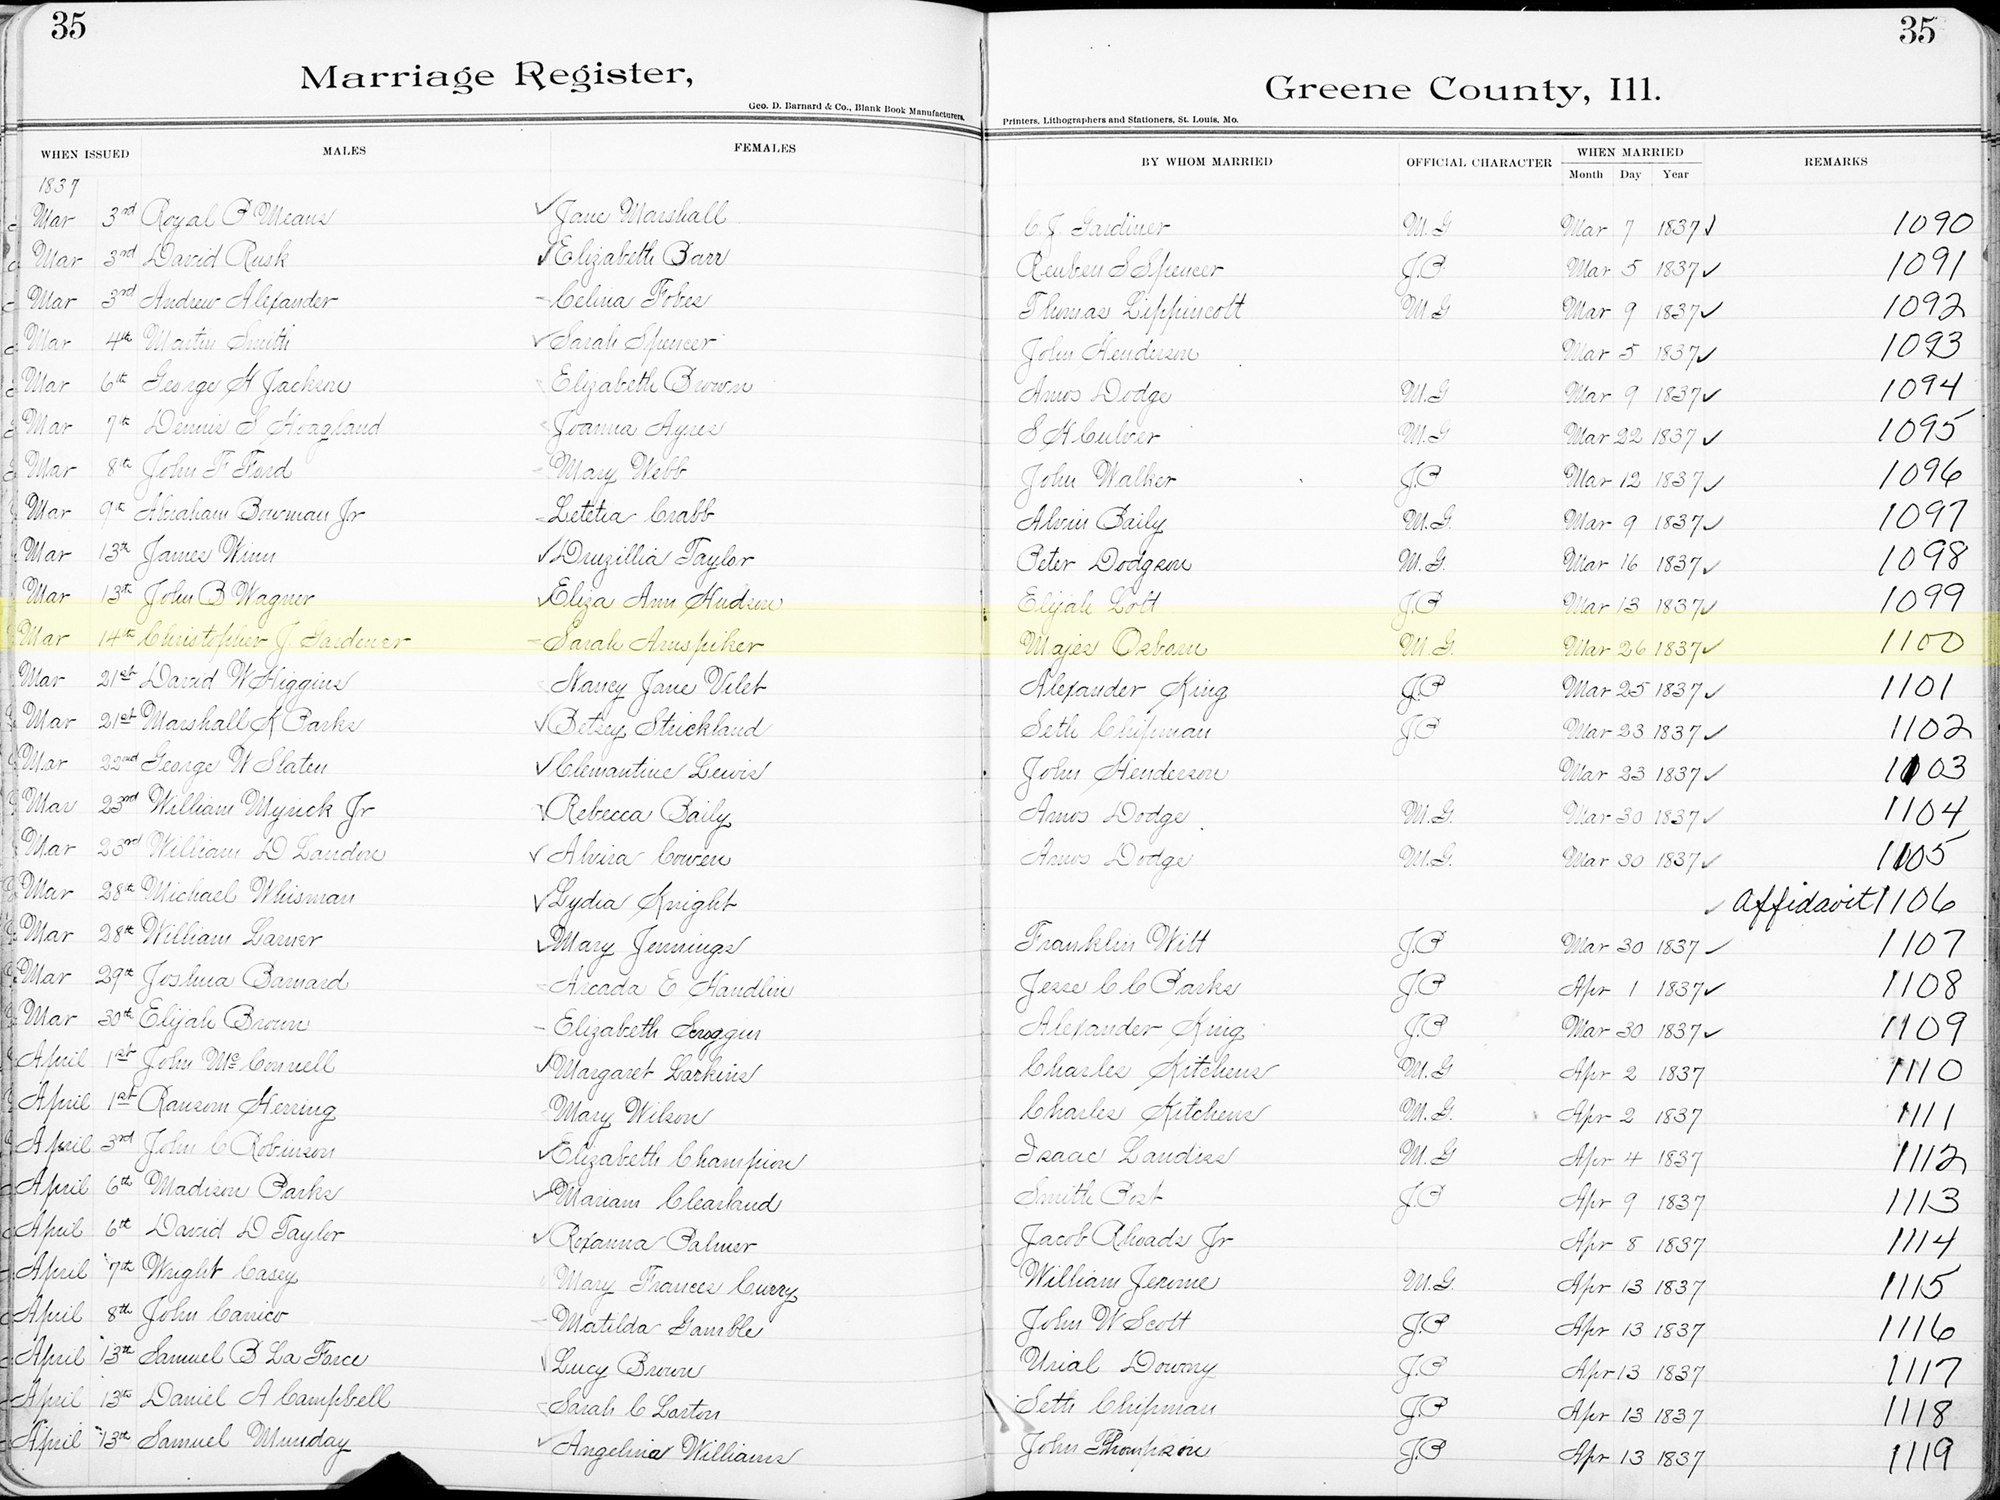 35
35
Marriage Register,
Greene County, Ill.
Geo. D. Barnard & Co., Blank Book Manufacturers,
Printers, Lithographers and Stationers, St. Louis, Mo.
WHEN ISSUED MALES FEMALES BY WHOM MARRIED OFFICIAL CHARACTER WHEN MARRIED REMARKS
Month Day Year
1837
Mar 3rd Royal P Means Jane Marshall C. J. Gardiner M.G Mar 7 1837 1090
Mar 3rd David Rusk Elizabeth Barr Reuben S Spencer J.P. Mar 5 1837 1091
Mar 3rd Andrew Alexander Celina Fobes Thomas Lippincott M.G Mar 9 1837 1092
Mar 4th Martin Smith Sarah Spencer John Henderson Mar 5 1837 1093
Mar 6th George H Jackson Elizabeth Brown Amos Dodge M.G Mar 9 1837 1094
Mar 7th Dennis S Hoagland Joanna Ayres S H Culver M.G Mar 22 1837 1095
Mar 8th John F Ford Mary Webb John Walker J.P Mar 12 1837 1096
Mar 9th Abraham Bowman Jr Letetia Crabb Alvin Baily M.G. Mar 9 1837 1097
Mar 13th James Winn Druzillia Taylor Peter Dodgson M.G. Mar 16 1837 1098
Mar 13th John B Wagner Eliza Ann Hudson Elijah Lott J.P Mar 13 1837 1099
Mar 14th Christopher J Gardener Sarah Amspiker Majer Osborn M.G. Mar 26 1837 1100
Mar 21st David W Higgins Nancy Jane Vilet Alexander King J.P Mar 25 1837 1101
Mar 21st Marshall K Parks Betsey Strickland Seth Chipman J.P Mar 23 1837 1102
Mar 22nd George W Slaten Clemantine Lewis John Henderson Mar 23 1837 1103
Mar 23rd William Myrick Jr Rebecca Baily Amos Dodge M.G. Mar 30 1837 1104
Mar 23rd William D Landon Alvira Cowen Amos Dodge M.G. Mar 30 1837 1105
Mar 28th Michael Whisman Lydia Knight Affidavit 1106
Mar 28th William Larner Mary Jennings Franklin Witt J.P Mar 30 1837 1107
Mar 29th Joshua Barnard Arcada E Handlin Jesse C C Parks J.P Apr 1 1837 1108
Mar 30th Elijah Brown Elizabeth Scroggin Alexander King J.P Mar 30 1837 1109
April 1st John McConnell Margaret Larkins Charles Kitchens M.G Apr 2 1837 1110
April 1st Ransom Herring Mary Wilson Charles Kitchens M.G. Apr 2 1837 1111
April 3rd John C Robinson Elizabeth Champion Isaac Landiss M.G Apr 4 1837 1112
April 6th Madison Parks Mariam Clearland Smith Post J.P Apr 9 1837 1113
April 6th David D Taylor Roxanna Palmer Jacob Rhoads Jr Apr 8 1837 1114
April 7th Wright Casey Mary Frances Curry William Jerome M.G. Apr 13 1837 1115
April 8th John Canico Matilda Gamble John W Scott J.P Apr 13 1837 1116
April 13th Samuel B La Force Lucy Brown Urial Downy J.P Apr 13 1837 1117
April 13th Daniel A Campbell Sarah C Lorton Seth Chipman J.P Apr 13 1837 1118
April 13th Samuel Munday Angelina Williams John Thompson J.P Apr 13 1837 1119